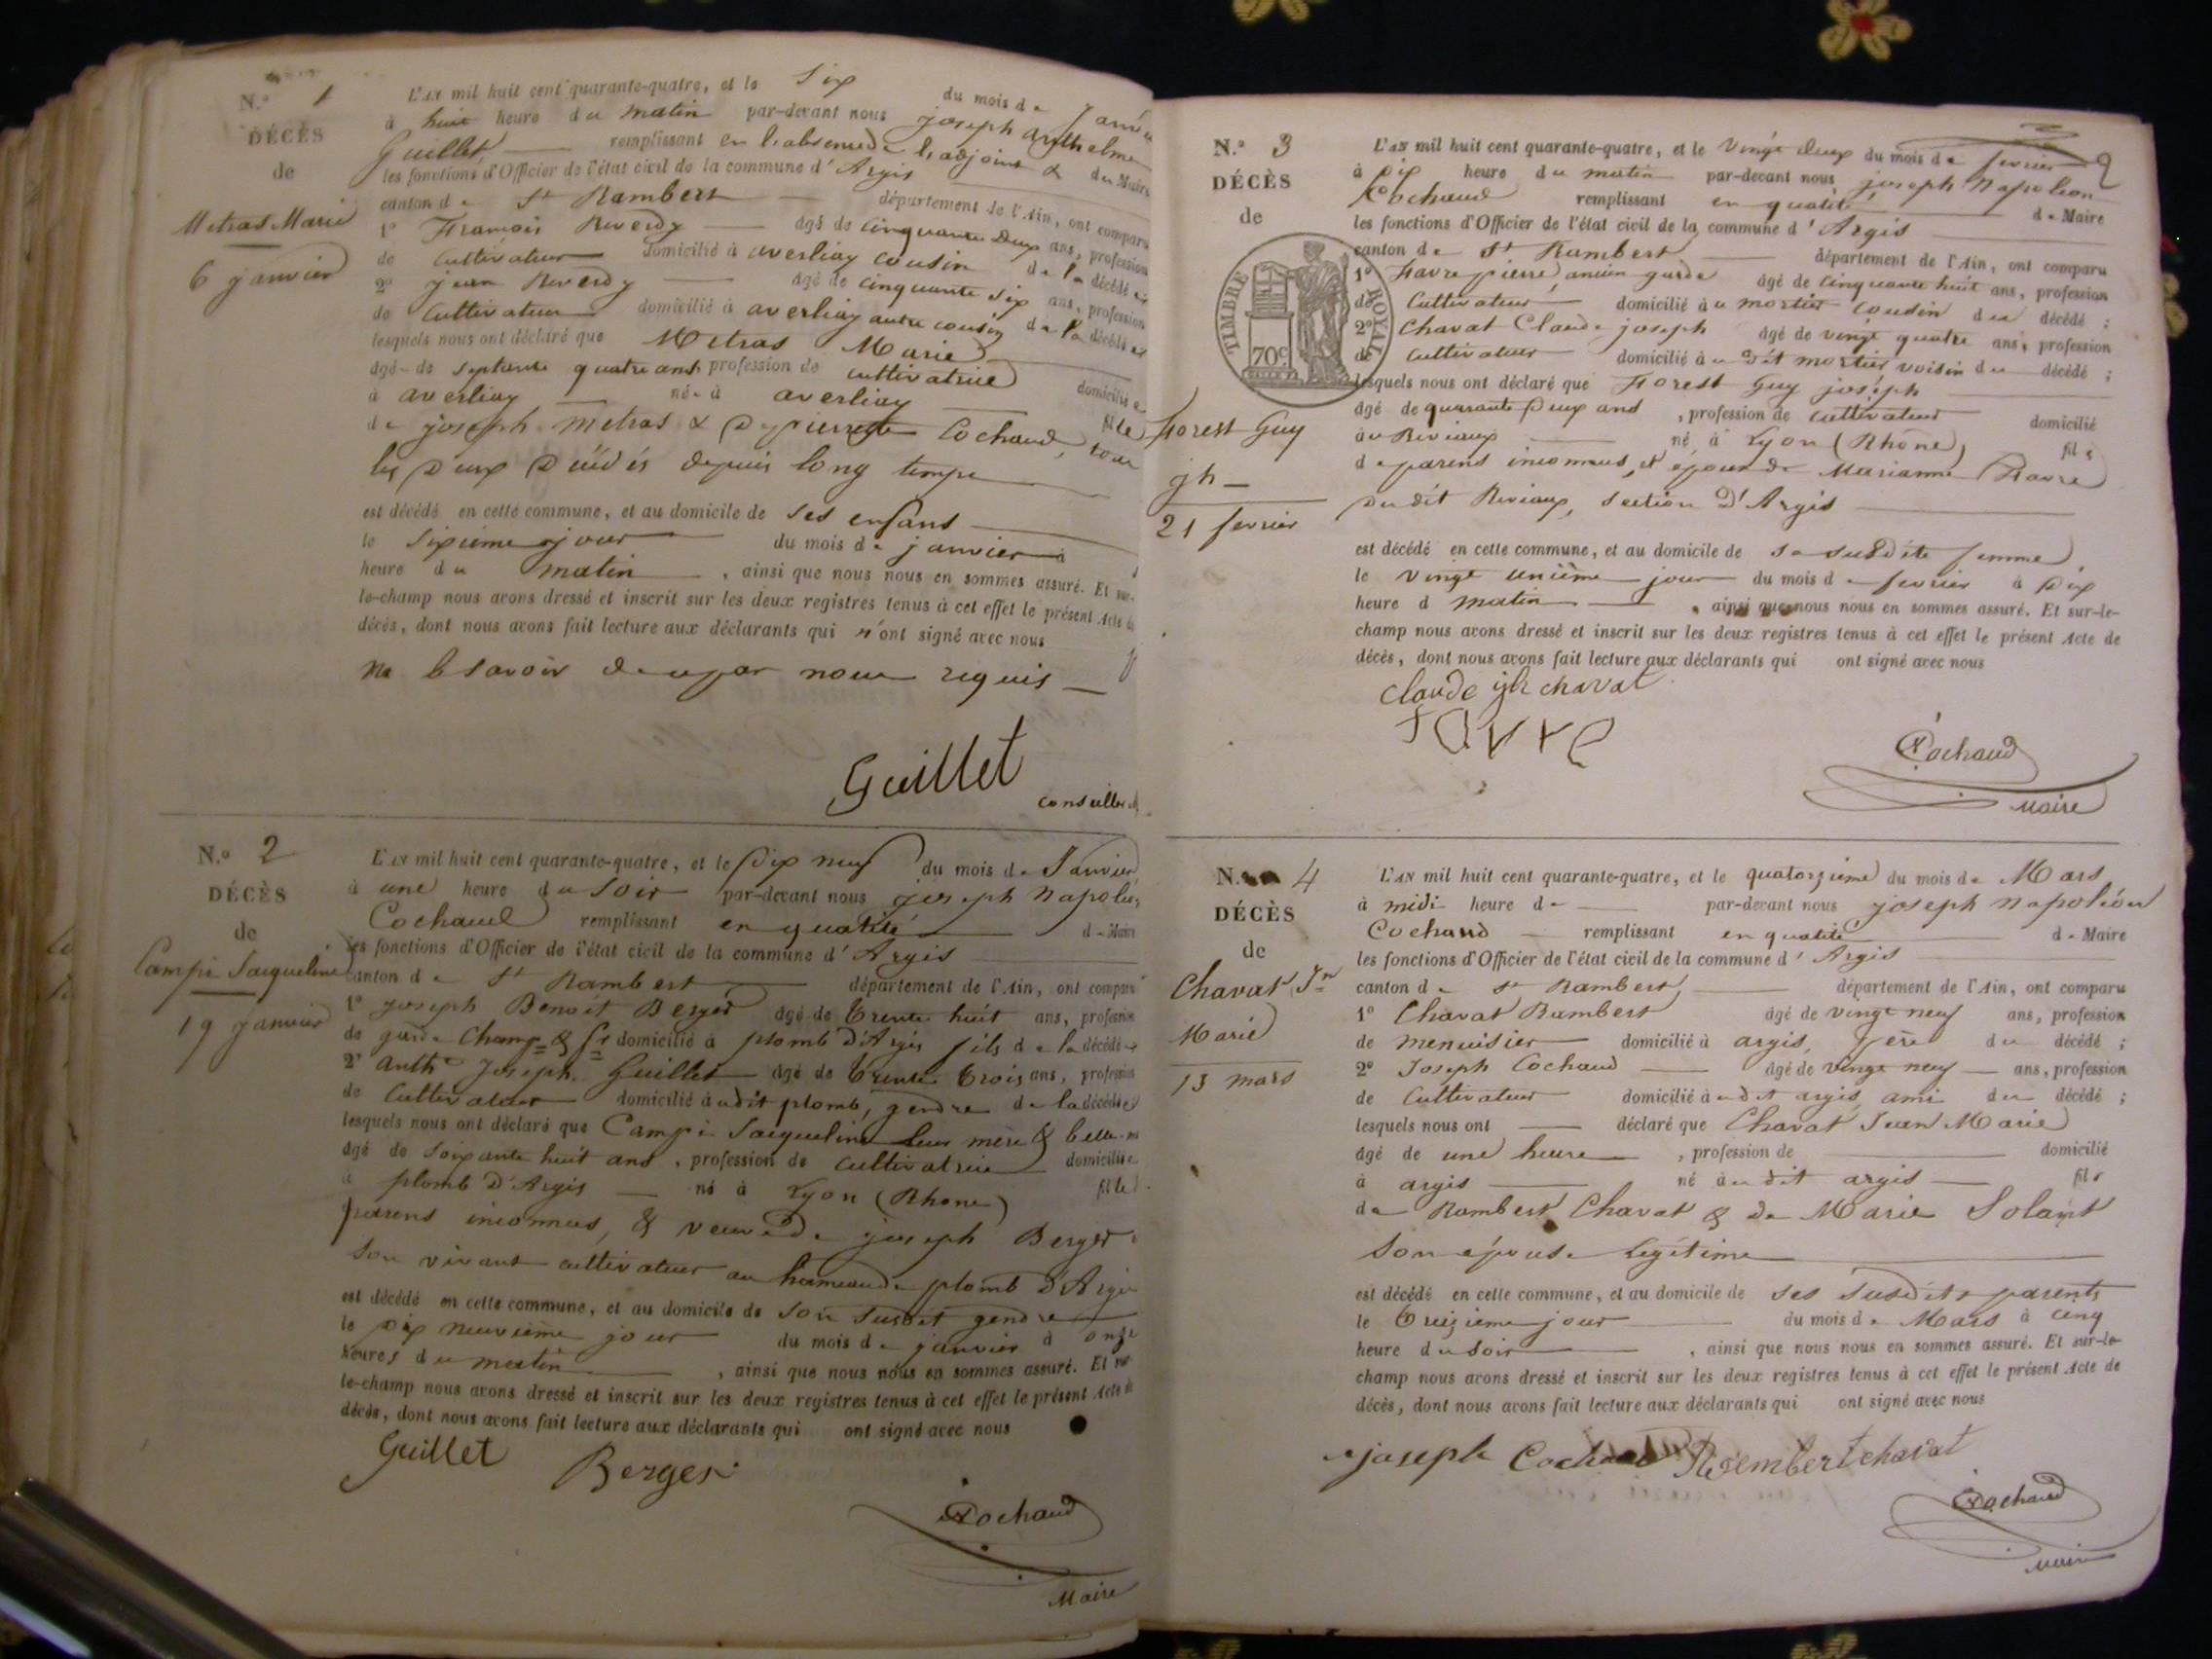 N.º 1
DÉCÈS
de
Metras Marie
6 janvier
L'AN mil huit cent quarante-quatre, et le six du mois de Janvier
à huit heure du matin par-devant nous joseph anthelme
Guillet remplissant en l'absence de l'adjoint & du Maire
les fonctions d'Officier de l'état civil de la commune d'Argis
canton de St Rambert département de l'Ain, ont comparu
1º François Reverdy âgé de cinquante deux ans, profession
de cultivateur domicilié à averliay cousin de la décédée
2º jean Reverdy âgé de cinquante six ans, profession
de cultivateur domicilié à averliay autre cousin de la décédée
lesquels nous ont déclaré que Metras Marie
âgé de septante quatre ans profession de cultivatrice domiciliée
à averliay née à averliay fille
de joseph metras & De pierrette Cochaud, tous
les deux décédés depuis long temps
est décédé en cette commune, et au domicile de ses enfans
le sixieme jour du mois de janvier à
heure du matin, ainsi que nous nous en sommes assuré. Et sur-
le-champ nous avons dressé et inscrit sur les deux registres tenus à cet effet le présent Acte de
décès, dont nous avons fait lecture aux déclarants qui n'ont signé avec nous
ne le savoir de par nous requis
Guillet
conseiller
N.º 2
DÉCÈS
de
Campi Jacqueline
19 janvier
L'AN mil huit cent quarante-quatre, et le dix neuf du mois de Janvier
à une heure du soir par-devant nous joseph Napoléon
Cochaud remplissant en qualité de Maire
les fonctions d'Officier de l'état civil de la commune d'Argis
canton de St Rambert département de l'Ain, ont comparu
1º joseph Benoit Berger âgé de trente huit ans, profession
de garde Champ= & fr domicilié à plomb d'Argis fils de la décédée
2º Anth Joseph Guillet âgé de trente trois ans, profession
de cultivateur domicilié audit plomb, gendre de la décédée
lesquels nous ont déclaré que Campi Jacqueline leur mère & belle-m
âgé de soixante huit ans, profession de cultivatrice domiciliée
à plomb d'Argis né à Lyon (Rhone) fille de
parens inconnus, & veuve de joseph Berger
son vivant cultivateur au hameau de plomb d'Argis
est décédé en cette commune, et au domicile de son susdit gendre
le dix neuvième jour du mois de janvier à onze
heures du matin, ainsi que nous nous en sommes assuré. Et sur
le-champ nous avons dressé et inscrit sur les deux registres tenus à cet effet le présent Acte de
décès, dont nous avons fait lecture aux déclarants qui ont signé avec nous
Guillet Berger
Cochaud
Maire
2
N.º 3
DÉCÈS
de
TIMBRE ROYAL
70c.
Forest Guy
jh
21 fevrier
L'AN mil huit cent quarante-quatre, et le vingt deux du mois de fevrier
à dix heure du matin par-devant nous joseph Napoléon
Cochaud remplissant en qualité de Maire
les fonctions d'Officier de l'état civil de la commune d'Argis
canton de St Rambert département de l'Ain, ont comparu
1º Favre pierre, ancien garde âgé de cinquante huit ans, profession
de cultivateur domicilié au mortier cousin du décédé ;
2º Chavat Claude joseph âgé de vingt quatre ans, profession
de cultivateur domicilié au dit mortier voisin du décédé ;
lesquels nous ont déclaré que Forest Guy joseph
âgé de quarante deux ans, profession de cultivateur domicilié
au Reviaux né à Lyon (Rhône) fils
de parens inconnus, et époux de Marianne Favre
du dit Reviaux, section d'Argis
est décédé en cette commune, et au domicile de sa susdite femme
le vingt unième jour du mois de fevrier à dix
heure d matin, ainsi que nous nous en sommes assuré. Et sur-le-
champ nous avons dressé et inscrit sur les deux registres tenus à cet effet le présent Acte de
décès, dont nous avons fait lecture aux déclarants qui ont signé avec nous
Claude jh chavat
Favre
Cochaud
Maire
N.º 4
DÉCÈS
de
Chavat Jn
Marie
13 mars
L'AN mil huit cent quarante-quatre, et le quatorzième du mois de Mars
à midi heure de par-devant nous joseph Napoléon
Cochaud remplissant en qualité de Maire
les fonctions d'Officier de l'état civil de la commune d'Argis
canton de St Rambert département de l'Ain, ont comparu
1º Chavat Rambert âgé de vingt neuf ans, profession
de menuisier domicilié à argis, père du décédé ;
2º Joseph Cochaud âgé de vingt neuf ans, profession
de cultivateur domicilié audit argis, ami du décédé ;
lesquels nous ont déclaré que Chavat Jean Marie
âgé de une heure, profession de domicilié
à argis né audit argis fils
de Rambert Chavat & de Marie Solant
son épouse légitime
est décédé en cette commune, et au domicile de ses susdits parents
le treizième jour du mois de Mars à cinq
heure du soir, ainsi que nous nous en sommes assuré. Et sur-le-
champ nous avons dressé et inscrit sur les deux registres tenus à cet effet le présent Acte de
décès, dont nous avons fait lecture aux déclarants qui ont signé avec nous
joseph Cochaud Rembert chavat
Cochaud
Maire